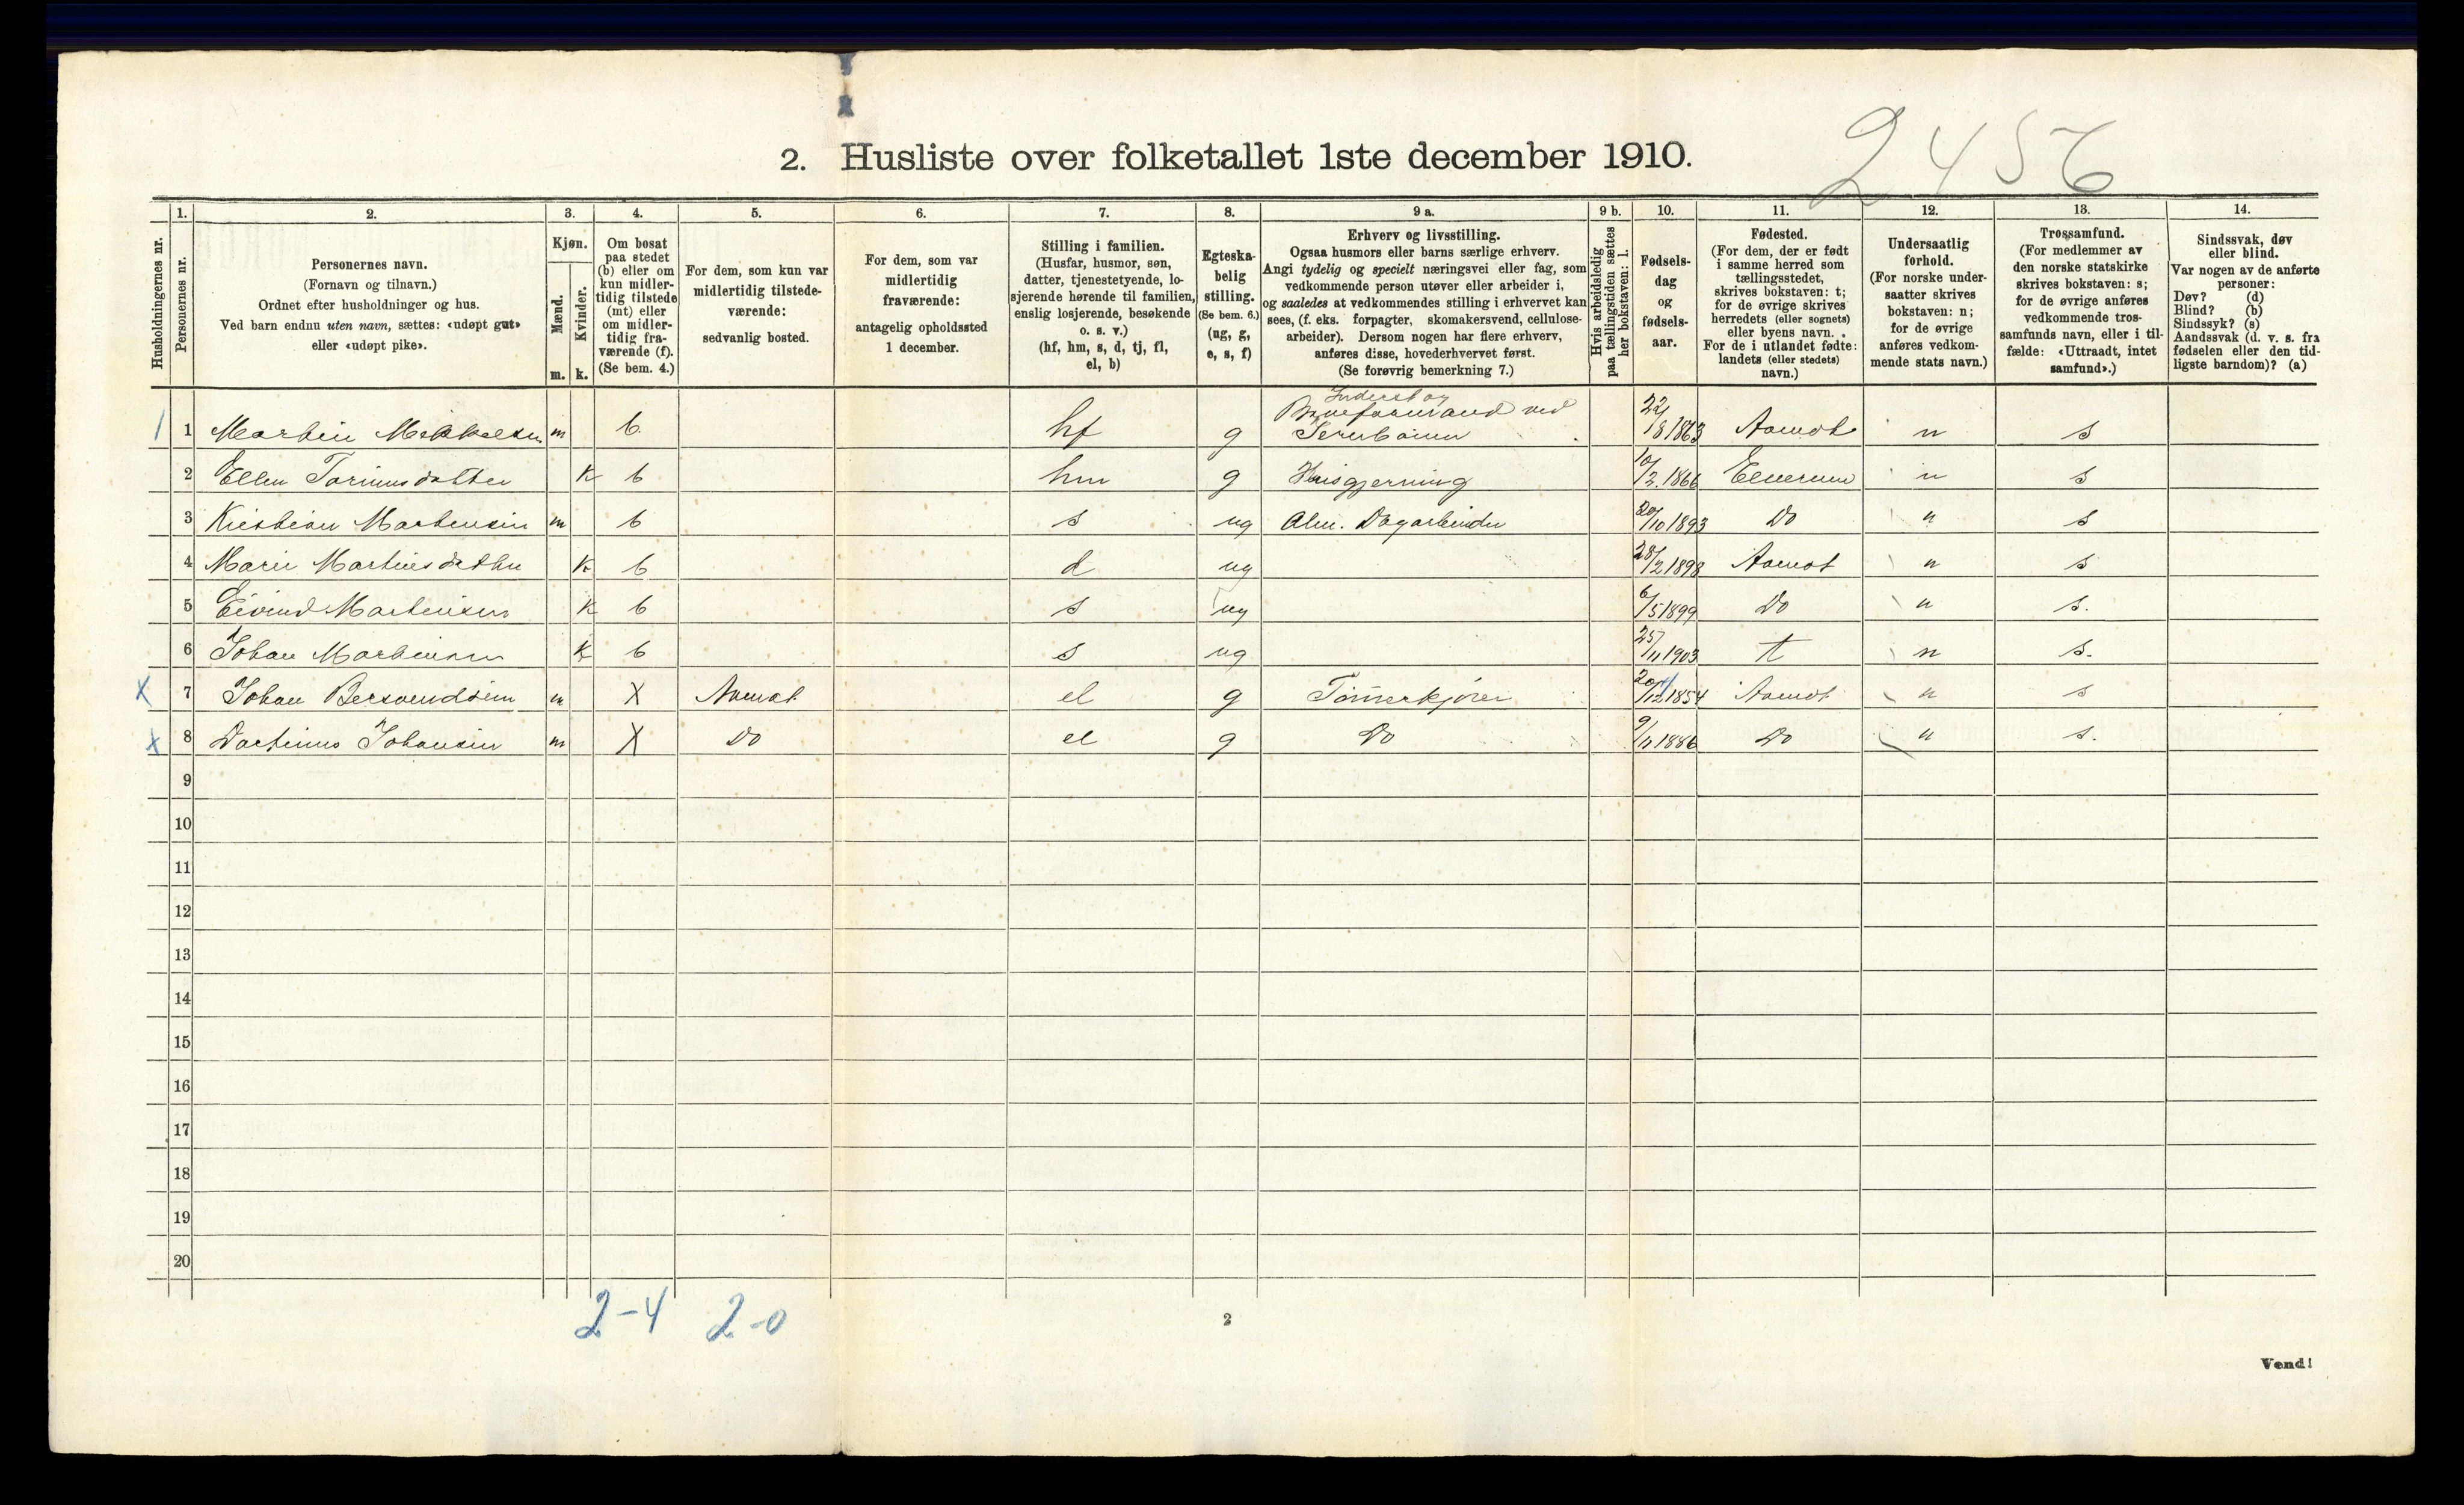 2456
2. Husliste over folketallet 1ste december 1910.
Husholdningernes nr.
1. Personernes nr.
2. Personernes navn.
(Fornavn og tilnavn.)
Ordnet efter husholdninger og hus.
Ved barn endnu uten navn, sættes: «udøpt gut»
eller «udøpt pike».
3. Kjøn.
Mænd. m.
Kvinder. k.
4. Om bosat
paa stedet
(b) eller om
kun midler-
tidig tilstede
(mt) eller
om midler-
tidig fra-
værende (f).
(Se bem. 4.)
5. For dem, som kun var
midlertidig tilstede-
værende:
sedvanlig bosted.
6. For dem, som var
midlertidig
fraværende:
antagelig opholdssted
1 december.
7. Stilling i familien.
(Husfar, husmor, søn,
datter, tjenestetyende, lo-
sjerende hørende til familien,
enslig losjerende, besøkende
o. s. v.)
(hf, hm, s, d, tj, fl,
el, b)
8. Egteska-
belig
stilling.
(Se bem. 6.)
(ug, g,
e, s, f)
9 a. Erhverv og livsstilling.
Ogsaa husmors eller barns særlige erhverv.
Angi tydelig og specielt næringsvei eller fag, som
vedkommende person utøver eller arbeider i,
og saaledes at vedkommendes stilling i erhvervet kan
sees, (f. eks. forpagter, skomakersvend, cellulose-
arbeider). Dersom nogen har flere erhverv,
anføres disse, hovederhvervet først.
(Se forøvrig bemerkning 7.)
9 b. Hvis arbeidsledig
paa tællingstiden sættes
her bokstaven: l.
10. Fødsels-
dag
og
fødsels-
aar.
11. Fødested.
(For dem, der er født
i samme herred som
tællingsstedet,
skrives bokstaven: t;
for de øvrige skrives
herredets (eller sognets)
eller byens navn.
For de i utlandet fødte:
landets (eller stedets)
navn.)
12. Undersaatlig
forhold.
(For norske under-
saatter skrives
bokstaven: n;
for de øvrige
anføres vedkom-
mende stats navn.)
13. Trossamfund.
(For medlemmer av
den norske statskirke
skrives bokstaven: s;
for de øvrige anføres
vedkommende tros-
samfunds navn, eller i til-
fælde: «Uttraadt, intet
samfund».)
14. Sindssvak, døv
eller blind.
Var nogen av de anførte
personer:
Døv? (d)
Blind? (b)
Sindssyk? (s)
Aandssvak (d. v. s. fra
fødselen eller den tid-
ligste barndom)? (a)
1 1 Martin Mikkelsen m b hf g ved 22/8 1863 Aamot n s
2 Ellen k b hm g Husgjerning 10/2. 1866 Elverum n s
3 Kristian Martinsen m b s ug Alm. Dagarbeider 20/10 1893 Do n s
4 Marie Martinsdatter k b d ug 28/2 1898 Aamot n s
5 Eivind Martinsen k b s ug 6/5 1899 Do n s.
6 Johan Martinsen k b s ug 25/11 1903 t n s.
X 7 Johan Bersvendsen m X Aamot el g Tømmerkjører 20/12 1854 Aamot n s
X 8 Johansen m X Do el g Do 9/11 1886 Do n s.
9
10
11
12
13
14
15
16
17
18
19
20
2-4 2-0
2
Vend!